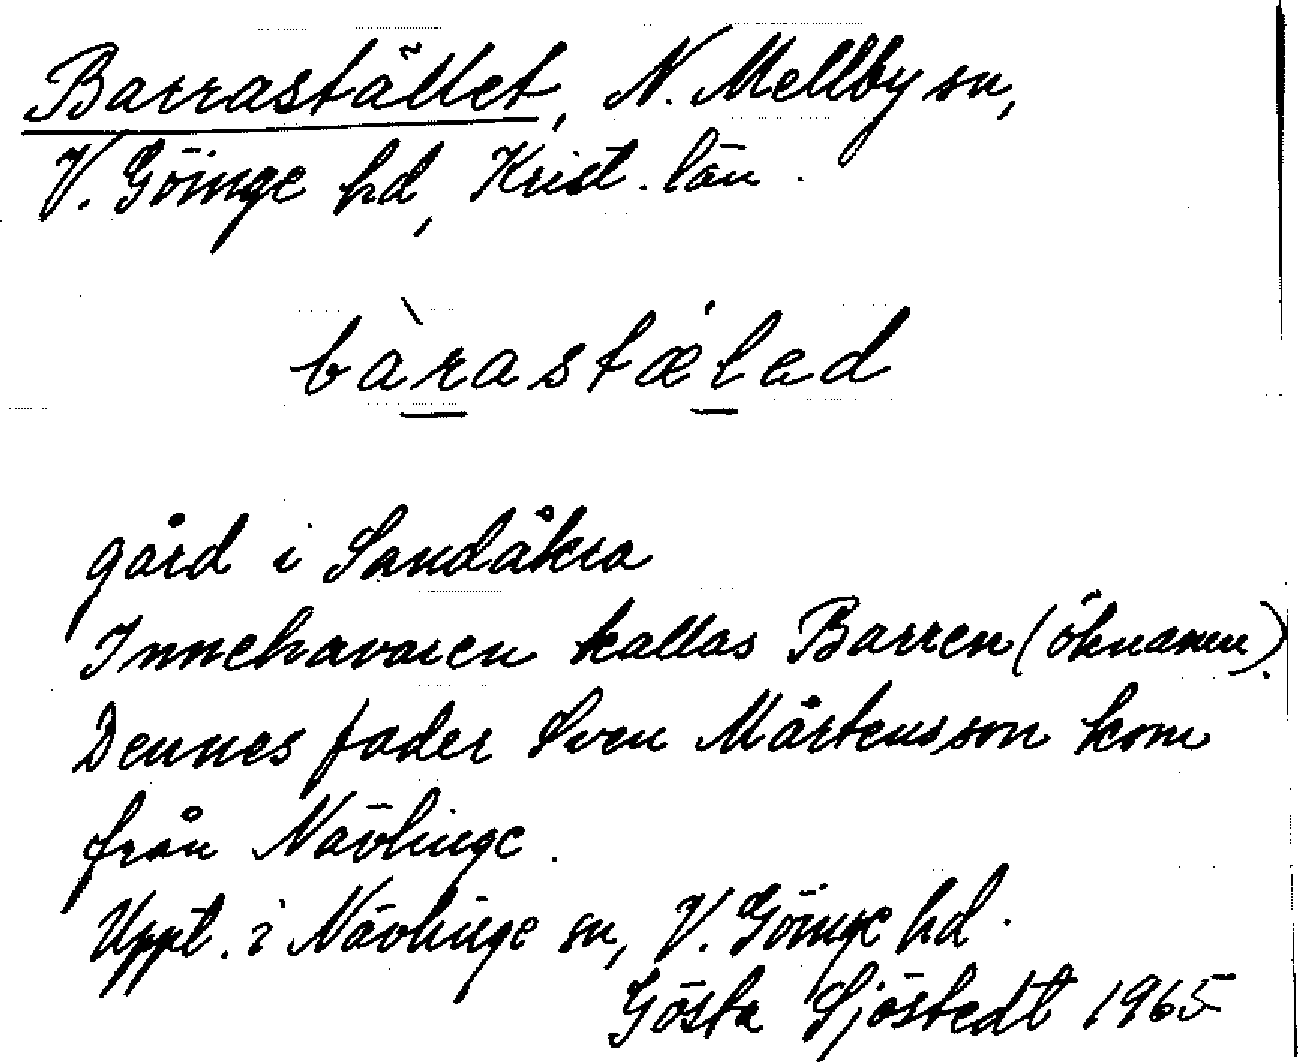 Barrastället, N. Mellby sn,
V. Göinge hd, Krist. län.
bàrastæ̇lad
gård i Sandåkra
Innehavaren kallas Barren (öknamn).
Dennes fader Sven Mårtensson kom
från Nävlinge.
Uppt. i Nävlinge sn, V. Göinge hd.
Gösta Sjöstedt 1965